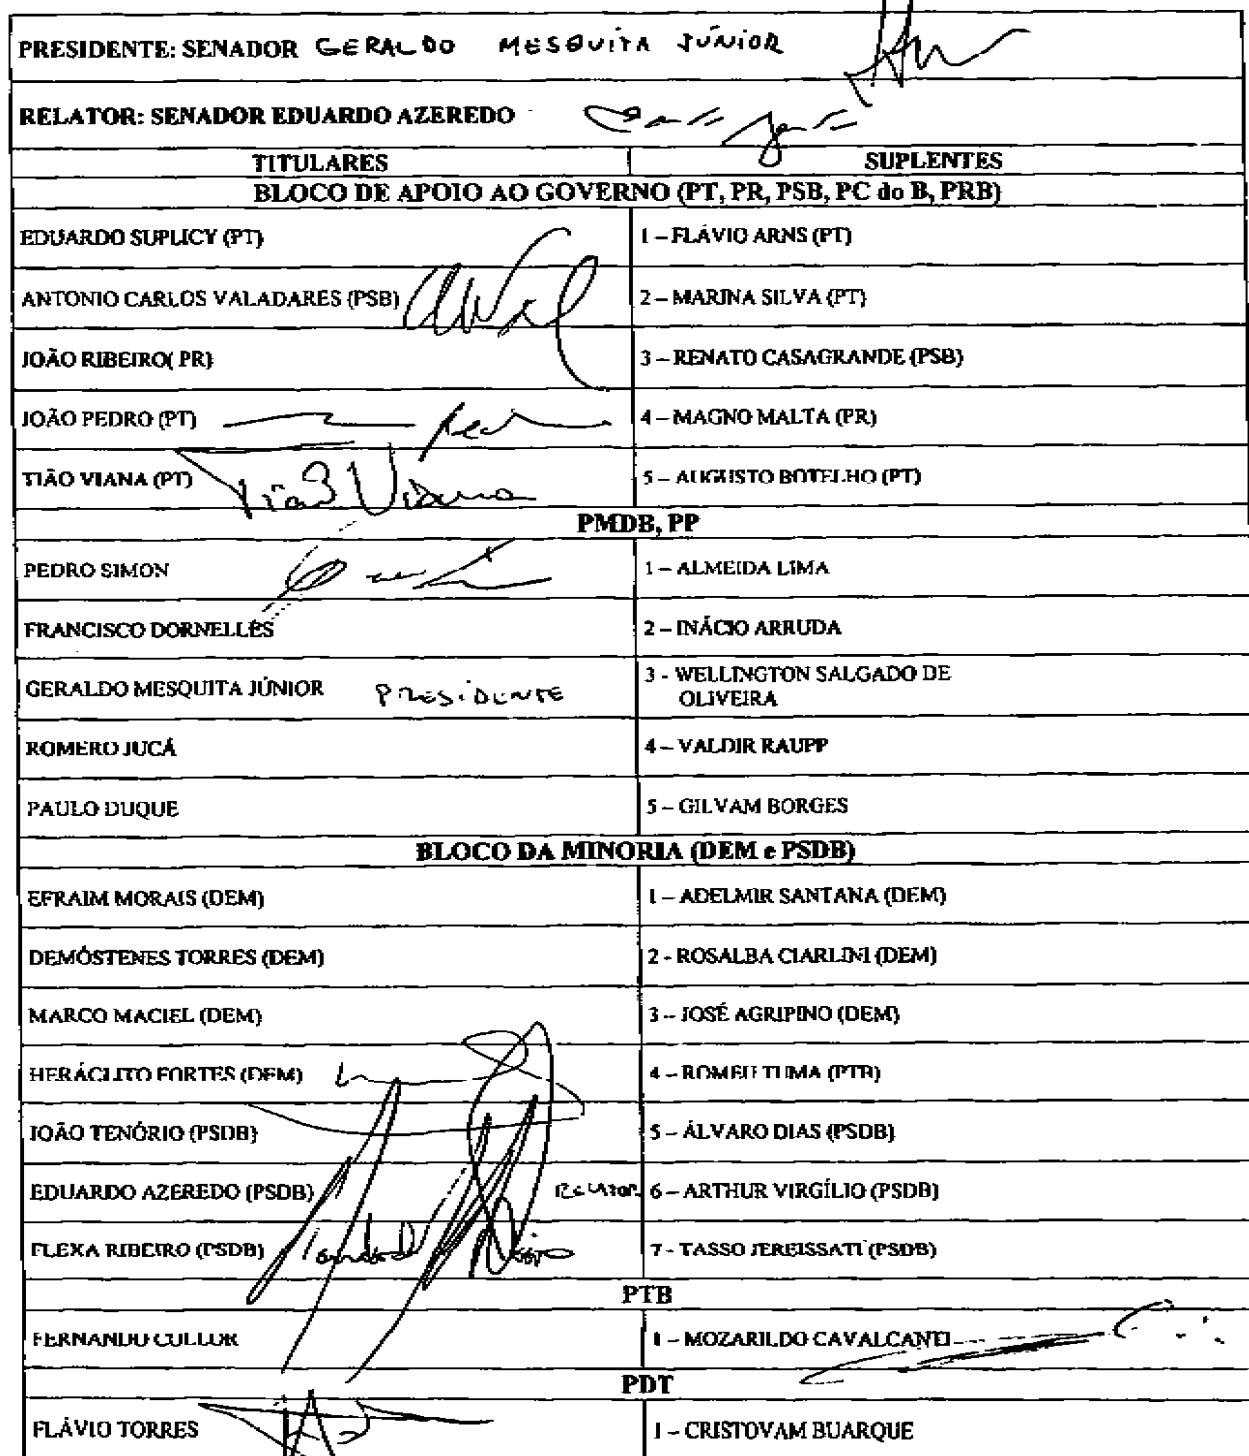 PRESIDENTE: SENADOR GERALDO MESQUITA JÚNIOR
RELATOR: SENADOR EDUARDO AZEREDO
TITULARES SUPLENTES
BLOCO DE APOIO AO GOVERNO (PT, PR, PSB, PC do B, PRB)
EDUARDO SUPLICY (PT) 1 – FLÁVIO ARNS (PT)
ANTONIO CARLOS VALADARES (PSB) 2 – MARINA SILVA (PT)
JOÃO RIBEIRO( PR) 3 – RENATO CASAGRANDE (PSB)
JOÃO PEDRO (PT) 4 – MAGNO MALTA (PR)
TIÃO VIANA (PT) Tião Viana 5 – AUGUSTO BOTELHO (PT)
PMDB, PP
PEDRO SIMON 1 – ALMEIDA LIMA
FRANCISCO DORNELLES 2 – INÁCIO ARRUDA
GERALDO MESQUITA JÚNIOR PRESIDENTE 3 - WELLINGTON SALGADO DE
OLIVEIRA
ROMERO JUCÁ 4 – VALDIR RAUPP
PAULO DUQUE 5 – GILVAM BORGES
BLOCO DA MINORIA (DEM e PSDB)
EFRAIM MORAIS (DEM) 1 – ADELMIR SANTANA (DEM)
DEMÓSTENES TORRES (DEM) 2 - ROSALBA CIARLINI (DEM)
MARCO MACIEL (DEM) 3 – JOSÉ AGRIPINO (DEM)
HERÁCLITO FORTES (DEM) 4 – ROMEU TUMA (PTB)
JOÃO TENÓRIO (PSDB) 5 – ÁLVARO DIAS (PSDB)
EDUARDO AZEREDO (PSDB) RELATOR 6 – ARTHUR VIRGÍLIO (PSDB)
FLEXA RIBEIRO (PSDB) 7 - TASSO JEREISSATI (PSDB)
PTB
FERNANDO COLLOR 1 – MOZARILDO CAVALCANTI
PDT
FLÁVIO TORRES 1 – CRISTOVAM BUARQUE